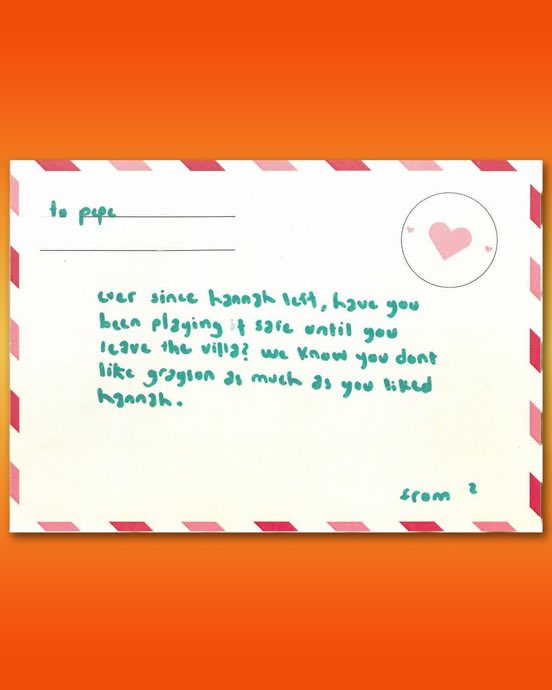 to pepe
ever since hannah left, have you
been playing it safe until you
leave the villa? we know you dont
like grayson as much as you liked
hannah.
from ?